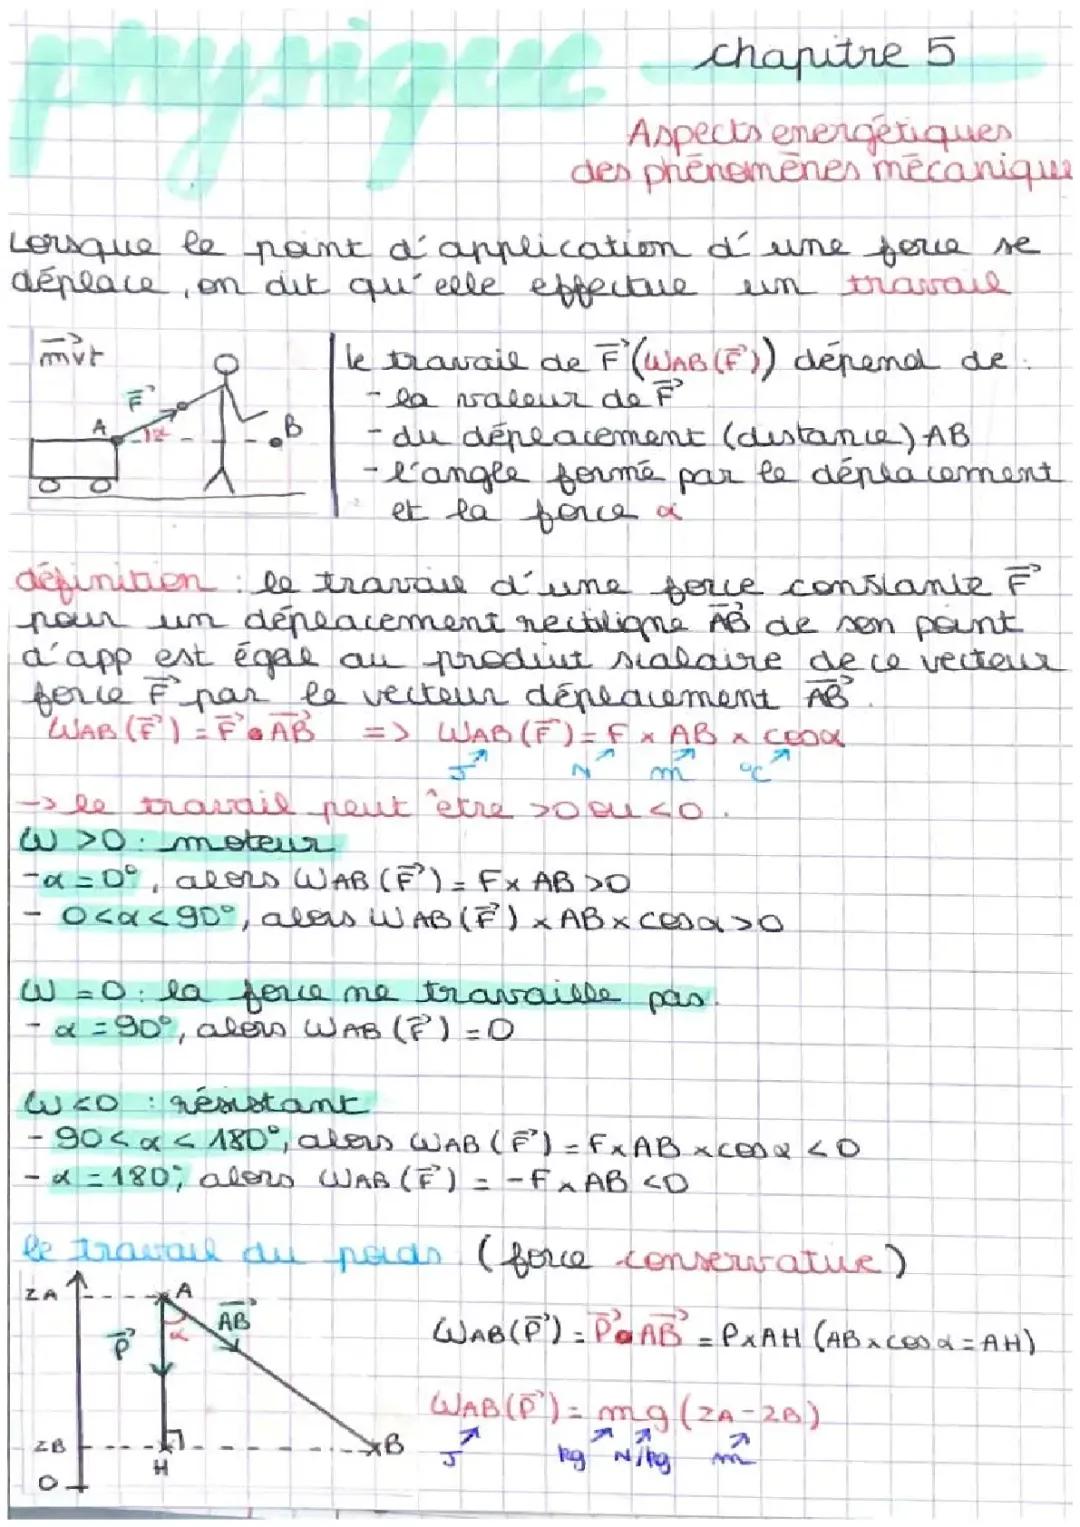 physique
chapitre 5
Aspects énergétiques
des phénomènes mécanique
Lorsque le point d'application d'une force se
déplace, on dit qu'elle effectue un travail
mvt
F
A
α
B
le travail de F⃗ (WAB(F⃗)) dépend de :
- la valeur de F⃗
- du déplacement (distance) AB
- l'angle formé par le déplacement
et la force α
définition : le travail d'une force constante F⃗
pour un déplacement rectiligne AB⃗ de son point
d'app est égale au produit scalaire de ce vecteur
force F⃗ par le vecteur déplacement AB⃗.
WAB (F⃗) = F⃗ • AB⃗ => WAB (F⃗) = F x AB x cosα
J N m °C
-> le travail peut être >0 ou <0.
W >0 : moteur
- α = 0°, alors WAB (F⃗) = F x AB >0
- 0<α<90°, alors WAB (F⃗) x AB x cosα >0
W = 0 : la force ne travaille pas.
- α = 90°, alors WAB (F⃗) = 0
W <0 : résistant
- 90 < α < 180°, alors WAB (F⃗) = F x AB x cosα <0
- α = 180°, alors WAB (F⃗) = - F x AB <0
le travail du poids (force conservative)
ZA
A
AB⃗
P⃗
α
ZB
H
B
O
WAB(P⃗) = P⃗ • AB⃗ = P x AH (AB x cos α = AH)
WAB(P⃗) = mg (ZA - ZB)
J kg N/kg m